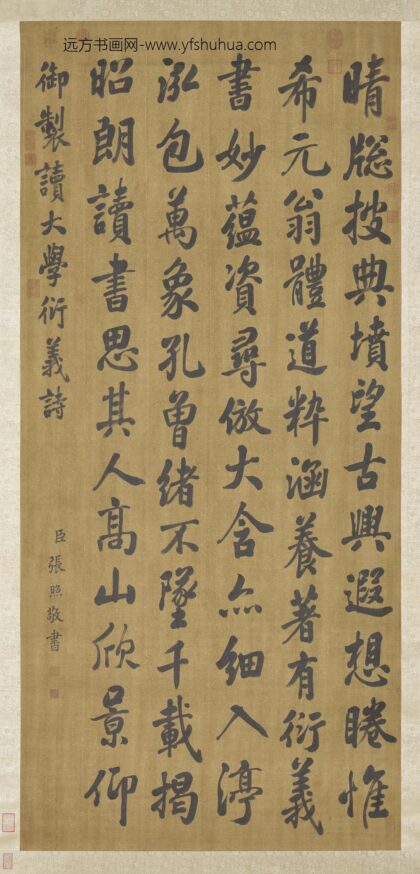 远方书画网-www.yfshuhua.com
晴牕披典墳望古興遐想睠惟
希元翁體道粹涵養著有衍義
書妙蘊資尋倣大含亦細入渟
泓包萬象孔曾緒不墜千載揭
昭朗讀書思其人髙山欣景仰
御製讀大學衍義詩
臣張照敬書